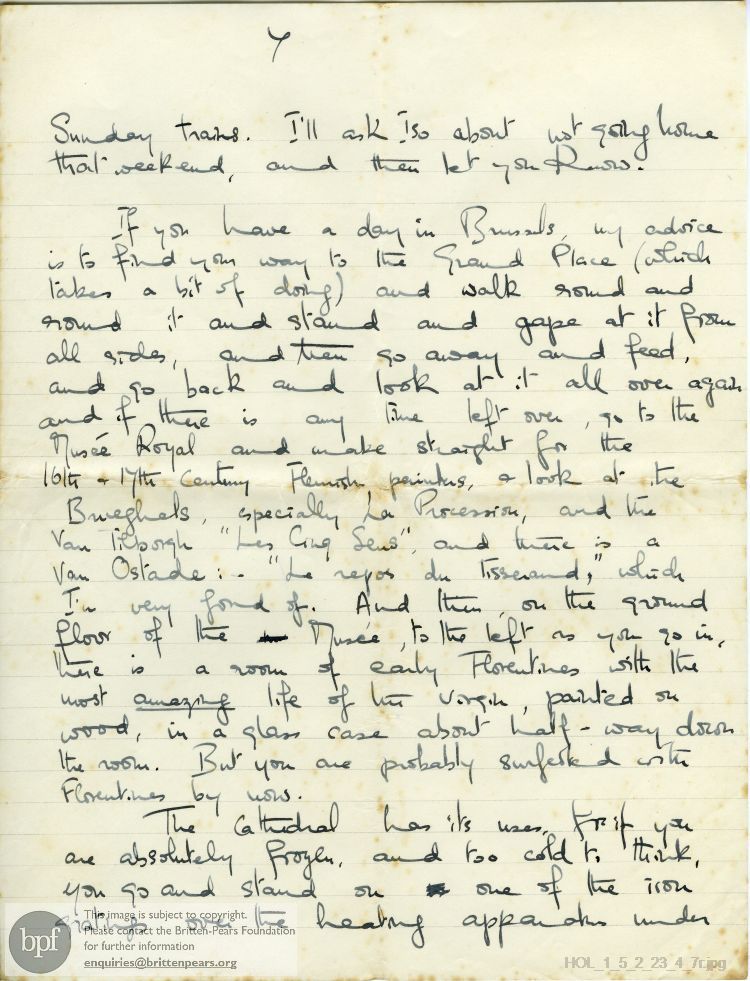 7
Sunday trains. I'll ask Iso about not going home
that weekend, and then let you know.
If you have a day in Brussels, my advice
is to find your way to the Grand Place (which
takes a bit of doing) and walk round and
round it and stand and gape at it from
all sides, and then go away and feed,
and go back and look at it all over again
and if there is any time left over, go to the
Musée Royal and make straight for the
16th + 17th Century Flemish painters, & look at the
Brueghels, especially La Procession, and the
Van Tilborgh "Les Cinq Sens", and there is a
Van Ostade :- "Le repos du Tisserand," which
I'm very fond of. And then, on the ground
floor of the Musée, to the left as you go in,
there is a room of early Florentines with the
most amazing life of the Virgin, painted on
wood, in a glass case about half-way down
the room. But you are probably surfeited with
Florentines by now.
The Cathedral has its uses, for if you
are absolutely frozen, and too cold to think,
you go and stand on one of the iron
gratings over the heating apparatus under
bpf
This image is subject to copyright.
Please contact the Britten-Pears Foundation
for further information
enquiries@brittenpears.org
HOL_1_5_2_23_4_7r.jpg